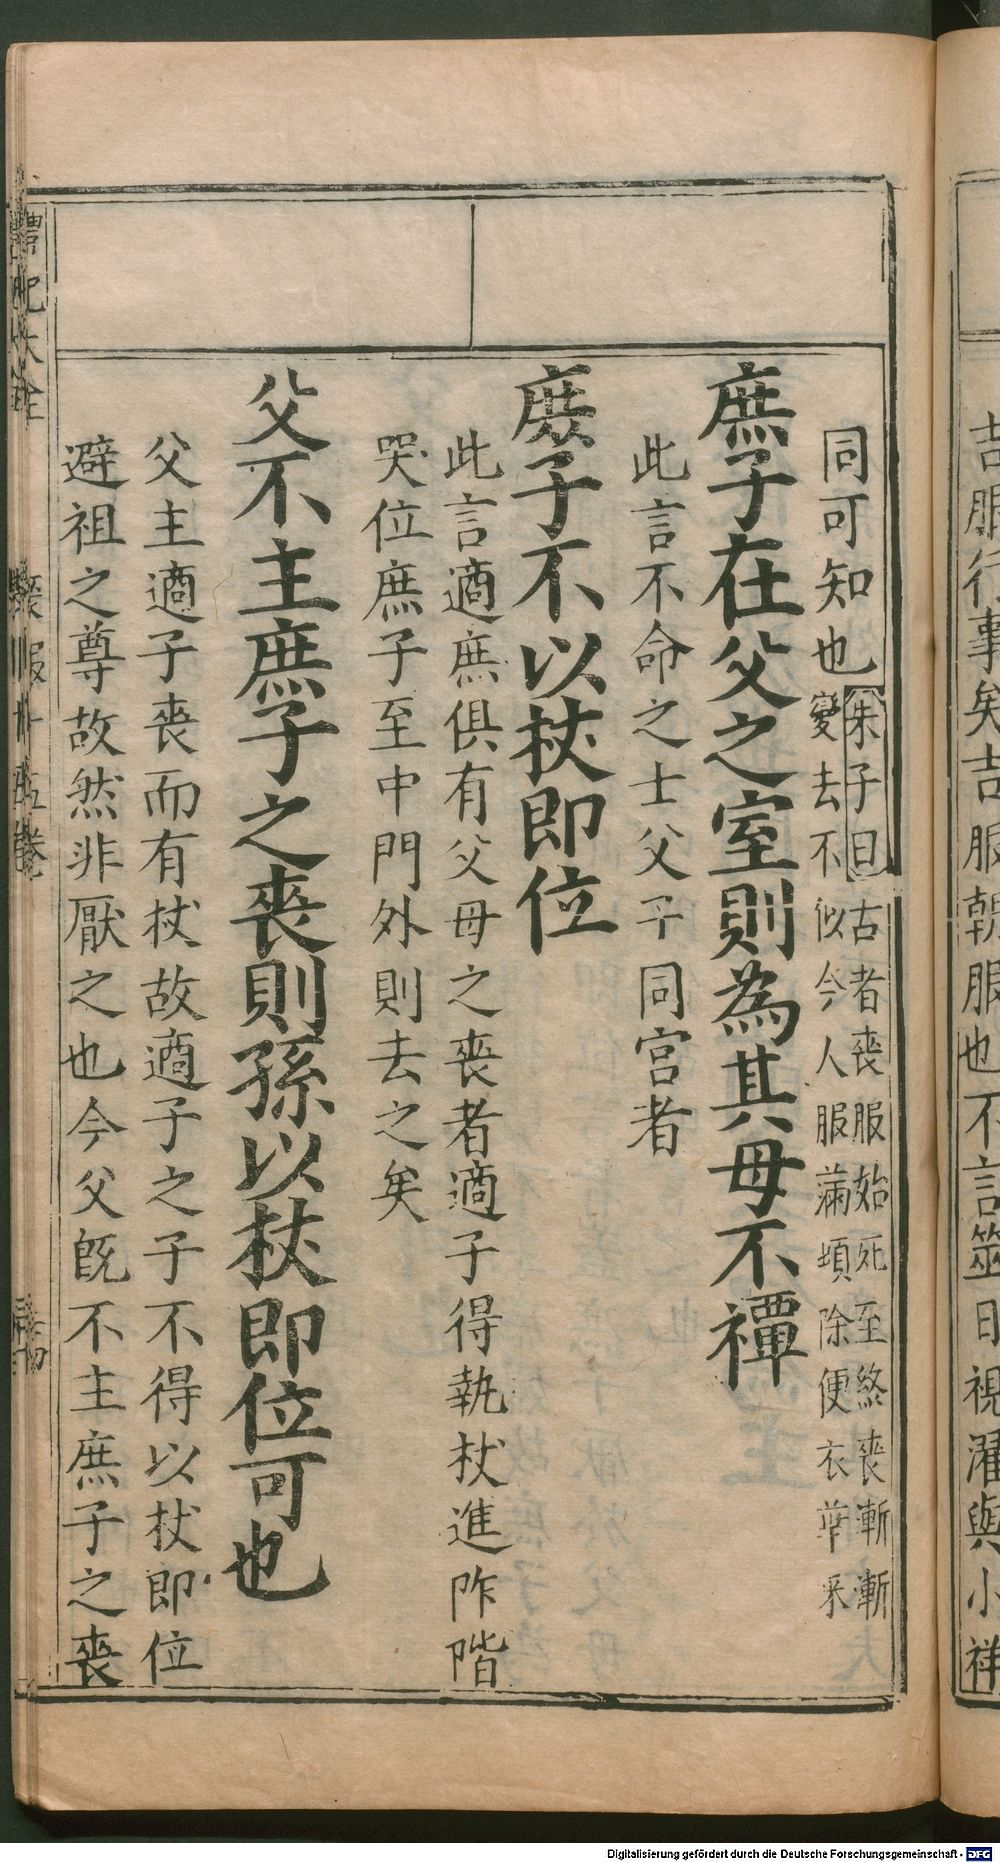 吉服行事矣吉服朝服也不言筮日視濯與小祥
同可知也朱子曰古者喪服始死至終喪漸漸
變去不似今人服滿頃除便衣華采
庶子在父之室則為其母不禫
此言不命之士父子同宮者
庶子不以杖即位
此言適庶俱有父母之喪者適子得執杖進阼階
哭位庶子至中門外則去之矣
父不主庶子之喪則孫以杖即位可也
父主適子喪而有杖故適子之子不得以杖即位
避祖之尊故然非厭之也今父既不主庶子之喪
禮記大全
喪服
Digitalisierung gefördert durch die Deutsche Forschungsgemeinschaft - DFG